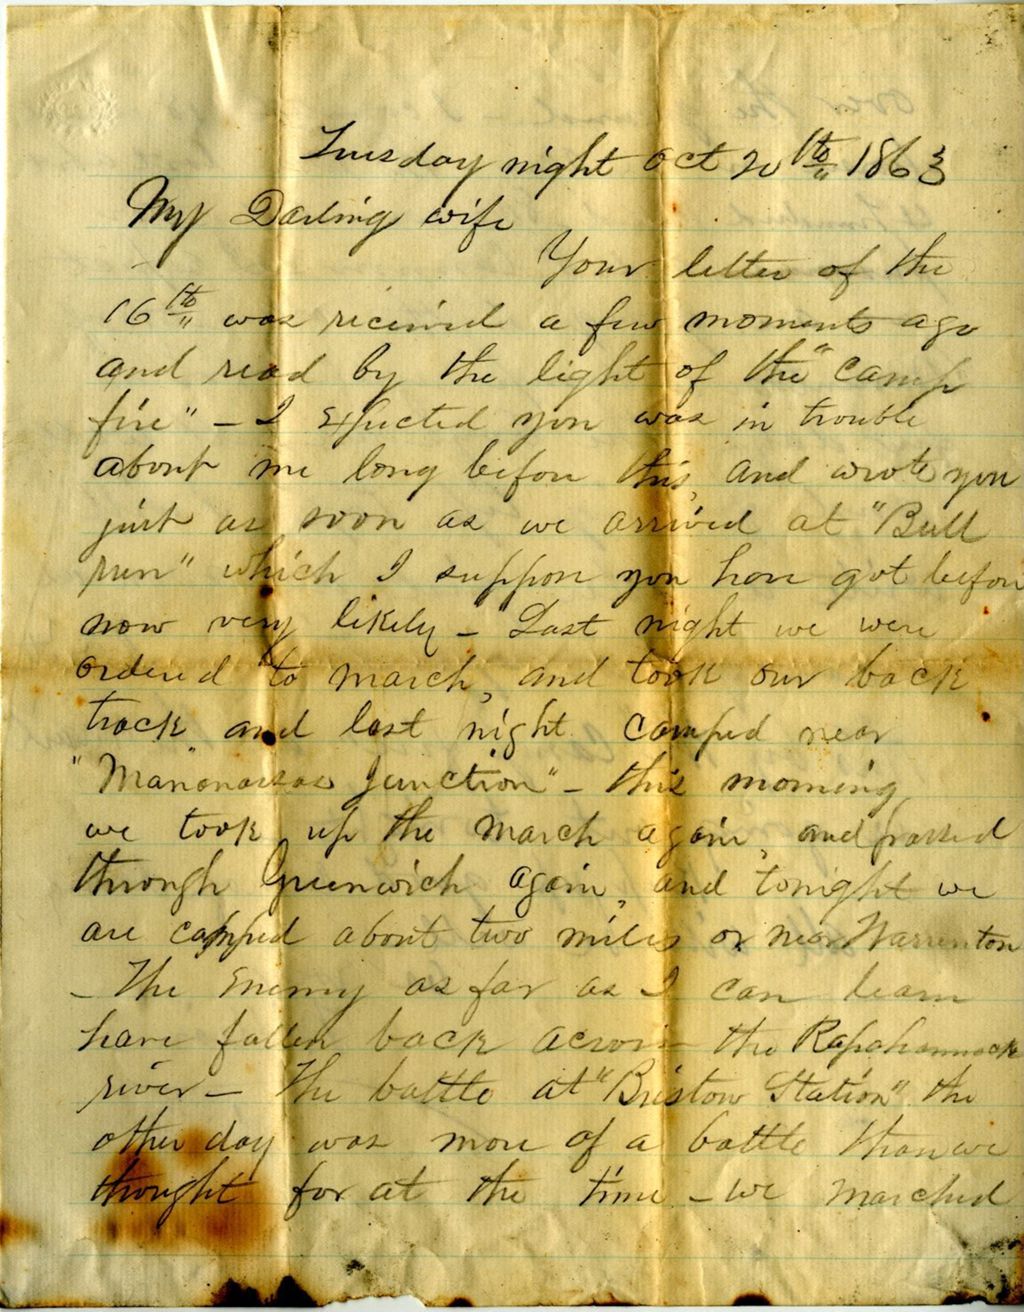 Tuesday night Oct 20th 1863
My Darling wife
Your letter of the
16th was received a few moments ago
and read by the light of the "camp
fire" - I expected you was in trouble
about me long before this, and wrote you
just as soon as we arrived at "Bull
run" which I suppose you have got before
now very likely - Last night we were
ordered to march, and took our back
track and last night camped near
"Mananassas Junction" - this morning
we took up the march again, and passed
through Greenwich again, and tonight we
are camped about two miles or near Warrenton
- The Enemy as far as I can learn
have fallen back across the Rapahannock
river - The battle at "Bristow Station" the
other day was more of a battle than we
thought for at the time - we marched